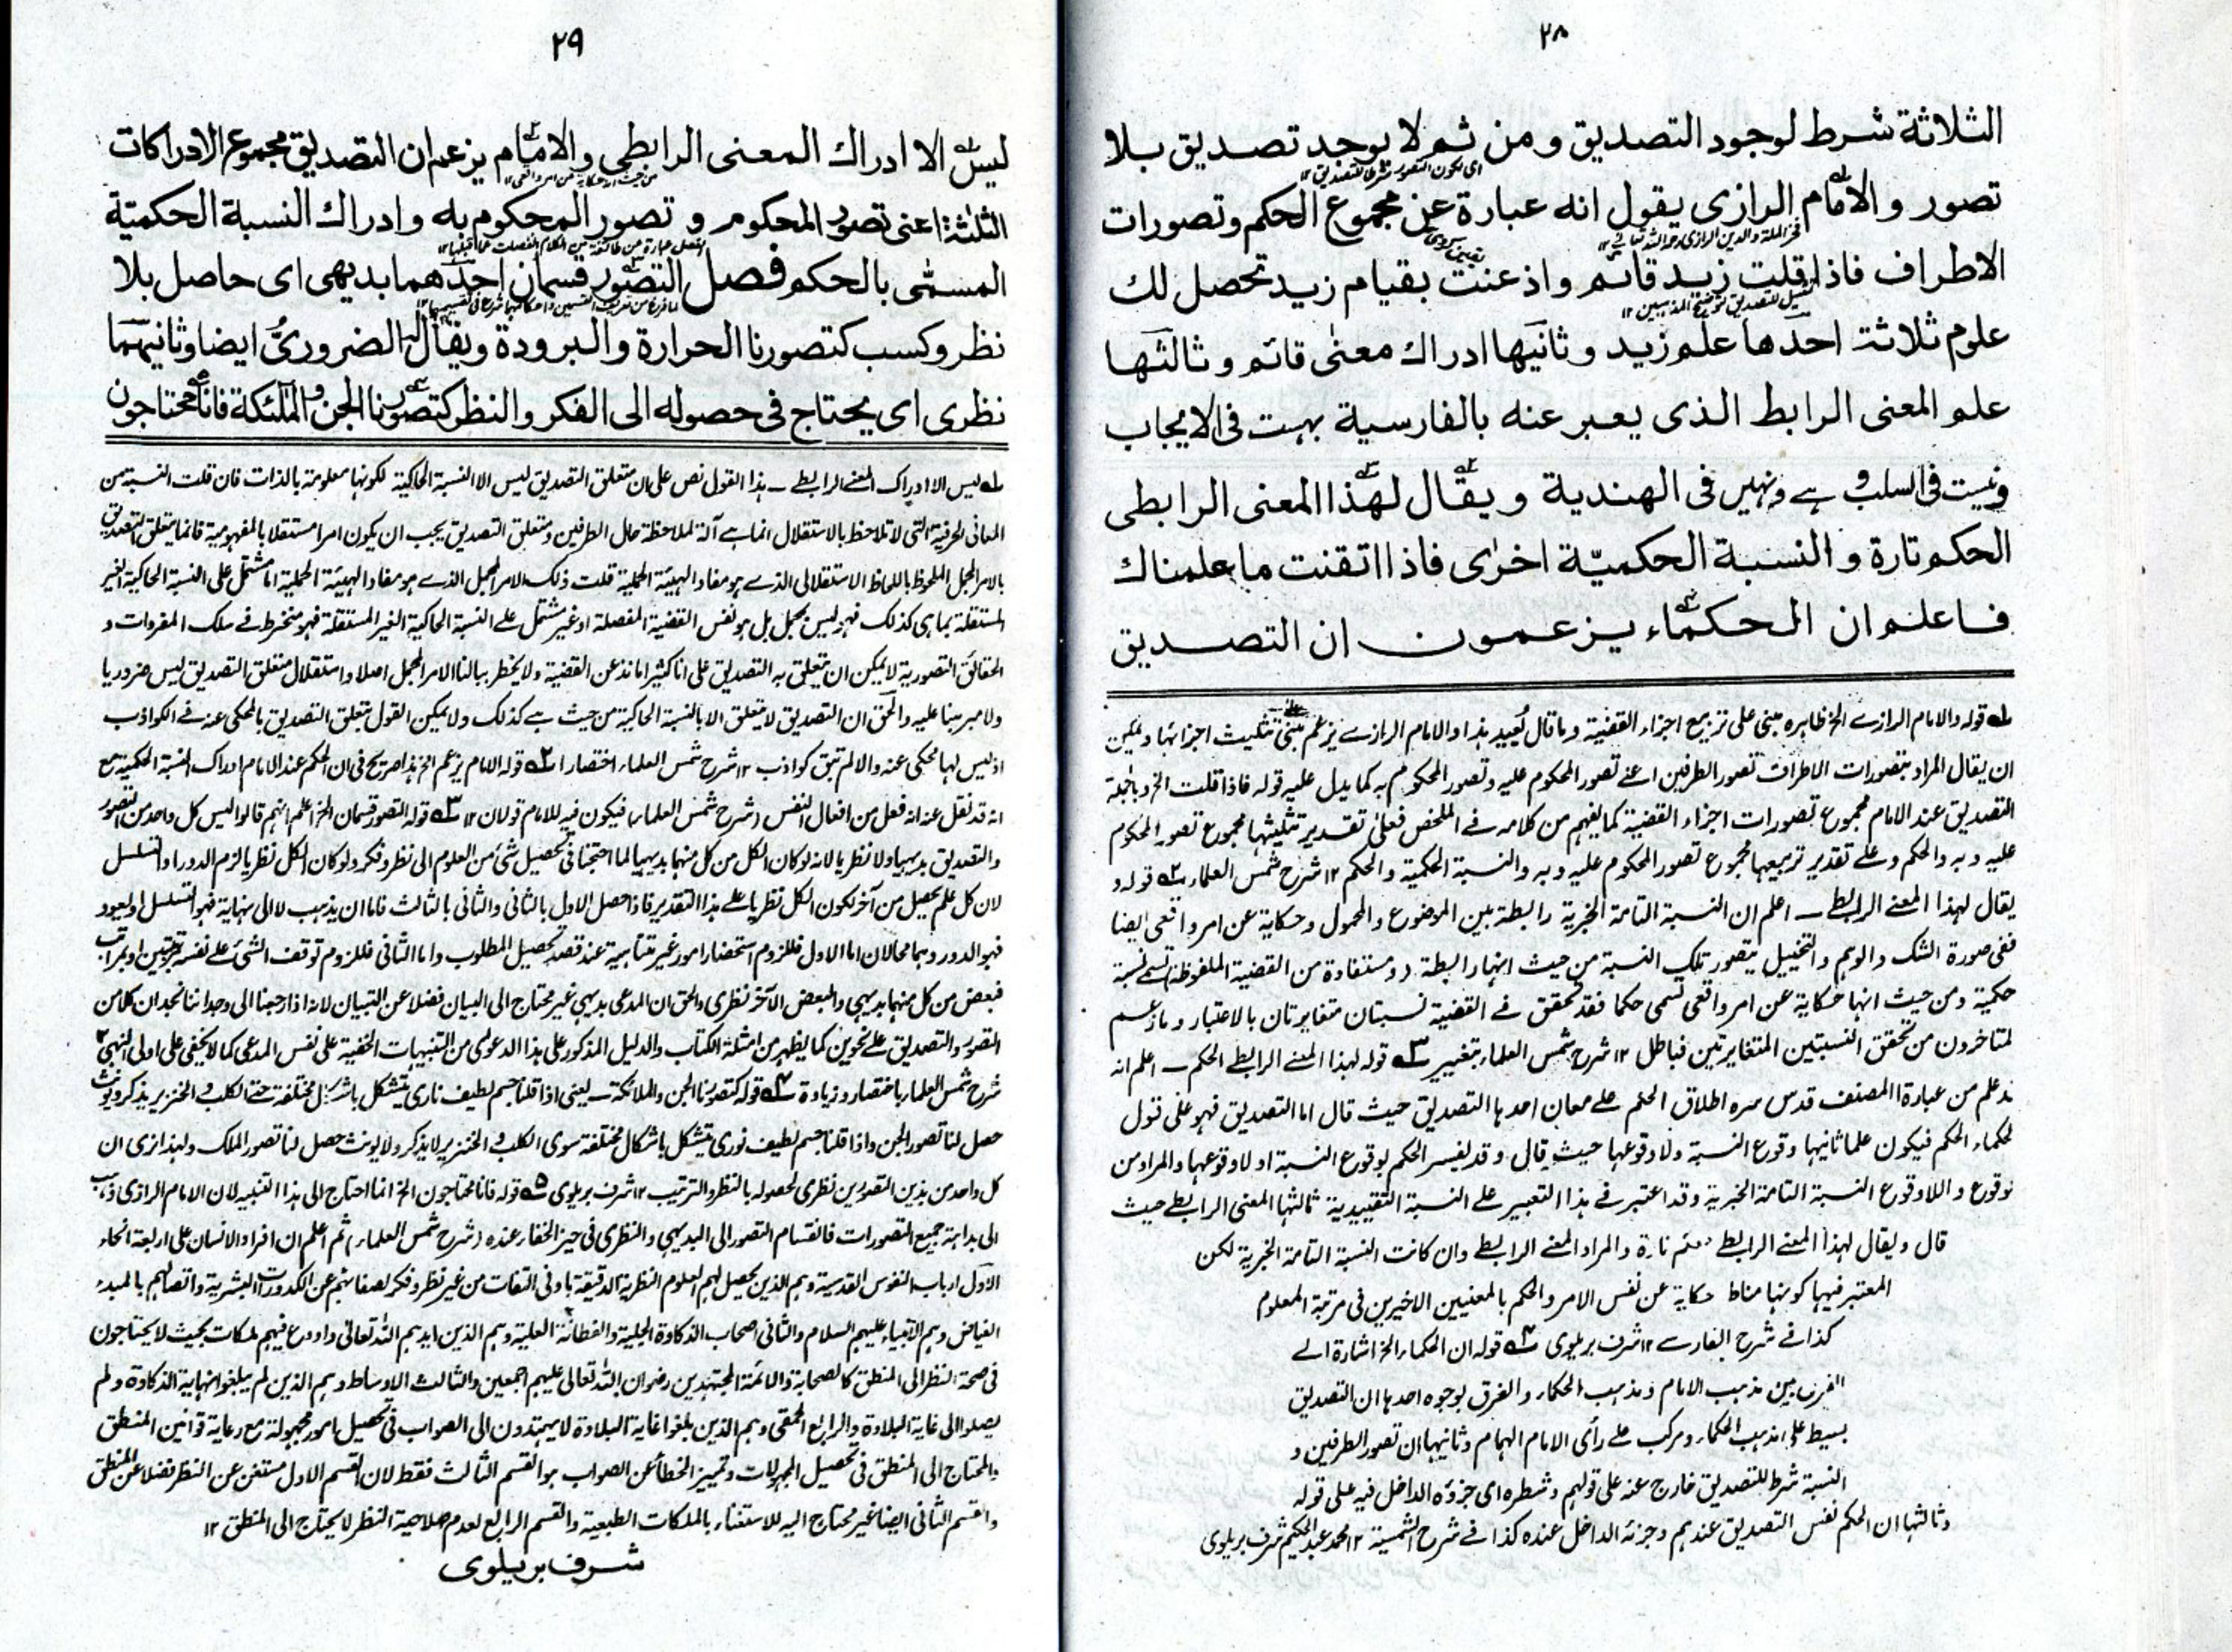 ٢٨
الثلاثة شرط لوجود التصديق ومن ثم لا يوجد تصديق بلا
اى لكون التصور شرطا للتصديق ١٢
تصور والامام الرازى يقول انه عبارة عن مجموع الحكم وتصورات
فخر الملة والدين الرازى رحمه الله تعالى ١٢
الاطراف فاذا قلت زيد قائم واذعنت بقيام زيد تحصل لك
تمثيل للتصديق لتوضيح المذهبين ١٢
علوم ثلاثة احدها علم زيد وثانيها ادراك معنى قائم وثالثها
علم المعنى الرابط الذى يعبر عنه بالفارسية بهست فى الايجاب
ونيست فى السلب و ہے ونہیں فى الهندية ويقال لهذا المعنى الرابطى
الحكم تارة والنسبة الحكميّة اخرى فاذا اتقنت ما علمناك
فاعلم ان الحكماء يزعمون ان التصديق
لـه قوله والامام الرازے الخ ظاهره مبنى على تربيع اجزاء القضية وما قال بُعيد هذا والامام الرازے يزعم مبنى على تثليث اجزائها ويمكن
ان يقال المراد بتصورات الاطراف تصور الطرفين اعنے تصور المحكوم عليه وتصور المحكوم به كما يدل عليه قوله فاذا قلت الخ وبالجملة
التصديق عند الامام مجموع تصورات اجزاء القضية كما يفهم من كلامه فے الملخص فعلى تقدير تثليثها مجموع تصور المحكوم
عليه وبه والحكم وعلے تقدير تربيعها مجموع تصور المحكوم عليه وبه والنسبة الحكمية والحكم ١٢ شرح شمس العلماء ٢ قوله و
يقال لهذا المعنے الرابطے ــ اعلم ان النسبة التامة الخبرية رابطة بين الموضوع والمحمول وحكاية عن امر واقعى ايضا
ففى صورة الشك والوهم والتخييل يتصور تلك النسبة من حيث انها رابطة (ومستفادة من القضية الملفوظة) تسمے نسبة
حكمية ومن حيث انها حكاية عن امر واقعى تسمى حكما فقد تحقق فے القضية نسبتان متغايرتان بالاعتبار وما زعم
لمتاخرون من تحقق النسبتين المتغايرتين فباطل ١٢ شرح شمس العلماء بتغيير ٣ قوله لهذا المعنے الرابطے الحكم ــ اعلم انه
قد علم من عبارة المصنف قدس سره اطلاق الحكم علے معان احدها التصديق حيث قال اما التصديق فهو على قول
لحكماء الحكم فيكون علما ثانيها وقوع النسبة ولا وقوعها حيث قال وقد يفسر الحكم بوقوع النسبة او لا وقوعها والمراد من
لوقوع واللاوقوع النسبة التامة الخبرية وقد اعتبر فے هذا التعبير علے النسبة التقييدية ثالثها المعنى الرابطے حيث
قال ويقال لهذا المعنے الرابطے الحكم تارة والمراد المعنے الرابطے وان كانت النسبة التامة الخبرية لكن
المعتبر فيها كونها مناط حكاية عن نفس الامر والحكم بالمعنيين الاخيرين فى مرتبة المعلوم
كذا فے شرح الفارسے ١٢ شرف بريلوى ٤ قوله ان الحكماء الخ اشارة الے
الفرق بين مذهب الامام ومذهب الحكماء والفرق بوجوه احدها ان التصديق
بسيط على مذهب الحكماء ومركب علے رأى الامام الهمام وثانيها ان تصور الطرفين و
النسبة شرط للتصديق خارج عنه على قولهم وشطره اى جزؤه الداخل فيه على قوله
وثالثها ان الحكم نفس التصديق عندهم وجزئه الداخل عنده كذا فے شرح الشمسية ١٢ محمد عبد الحكيم شرف بريلوى
٢٩
ليس الا ادراك المعنى الرابطى والامام يزعم ان التصديق مجموع الادراكات
من حيث انه حكاية عن امر واقعى ١٢
الثلثة اعنى تصور المحكوم و تصور المحكوم به وادراك النسبة الحكميّة
المسمّى بالحكم فصل التصور قسمان احدهما بديهى اى حاصل بلا
نظر وكسب كتصورنا الحرارة والبرودة ويقال له الضرورىُّ ايضا وثانيهما
نظرى اى يحتاج فى حصوله الى الفكر والنظر كتصورنا الجن والملٰئكة فانا محتاجون
لـه ليس الا ادراك المعنے الرابطے ــ هذا القول نص على ان متعلق التصديق ليس الا النسبة الحاكية لكونها معلومة بالذات فان قلت النسبة من
المعانى الحرفية التى لا تلاحظ بالاستقلال انما هے آلة لملاحظة حال الطرفين ومتعلق التصديق يجب ان يكون امرا مستقلا بالمفهومية فانما يتعلق التصديق
بالامر المجمل الملحوظ باللحاظ الاستقلالى الذے هو مفاد الهيئة الحملية قلت ذلك الامر المجمل الذے هو مفاد الهيئة الحملية اما مشتمل على النسبة الحاكية الغير
المستقلة بما هى كذلك فهو ليس بمجمل بل هو نفس القضية المفصلة او غير مشتمل علے النسبة الحاكية الغير المستقلة فهو منخرط فے سلك المفردات و
الحقائق التصورية لا يمكن ان يتعلق به التصديق على انا كثيرا ما نذعن القضية ولا يخطر ببالنا الامر المجمل اصلا واستقلال متعلق التصديق ليس ضروريا
ولا مبرهنا عليه والحق ان التصديق لا يتعلق الا بالنسبة الحاكية من حيث هے كذلك ولا يمكن القول بتعلق التصديق بالمحكى عنه فے الكواذب
اذ ليس لها محكى عنه والا لم تبق كواذب ١٢ شرح شمس العلماء اختصارا ٢ قوله الامام يزعم الخ هذا صريح فى ان الحكم عند الامام ادراك النسبة الحكمية مع
انه قد نقل عنه انه فعل من افعال النفس (شرح شمس العلماء) فيكون فيه للامام قولان ١٢ ٣ قوله التصور قسمان الخ اعلم انهم قالوا ليس كل واحد من التصور
والتصديق بديهيا ولا نظريا لانه لو كان الكل من كل منهما بديهيا لما احتجنا فى تحصيل شئ من العلوم الى نظر وفكر ولو كان الكل نظريا لزم الدور او التسلسل
لان كل علم يحصل من آخر لكون الكل نظريا علے هذا التقدير فاذا حصل الاول بالثانى والثانى بالثالث فاما ان يذهب لا الى نهاية فهو التسلسل او يعود
فهو الدور وهما محالان اما الاول فللزوم استحضار امور غير متناهية عند قصد تحصيل المطلوب واما الثانى فللزوم توقف الشئ علے نفسه بمرتبتين او بمراتب
فبعض من كل منهما بديهى والبعض الآخر نظرى والحق ان المدعى بديهى غير محتاج الى البيان فضلا عن التبيان لانا اذا رجعنا الى وجداننا نجد ان كلا من
التصور والتصديق علے نحوين كما يظهر من امثلة الكتاب والدليل المذكور على هذا الدعوى من التنبيهات الخفية على نفس المدعى كما لا يخفى على اولى النهى ١٢
شرح شمس العلماء باختصار وزيادة ٤ قوله كتصورنا الجن والملائكة ــ يعنى اذا قلنا جسم لطيف نارى يتشكل باشكال مختلفة حتے الكلب والخنزير يذكر ويونث
حصل لنا تصور الجن واذا قلنا جسم لطيف نورى يتشكل باشكال مختلفة سوى الكلب والخنزير لا يذكر ولا يونث حصل لنا تصور الملك ولهذا نرى ان
كل واحد من هذين التصورين نظرى لحصوله بالنظر والترتيب ١٢ شرف بريلوى ٥ قوله فانا محتاجون الخ انما احتاج الى هذا التنبيه لان الامام الرازى ذهب
الى بداهة جميع التصورات فانقسام التصور الى البديهى والنظرى فى حيز الخفاء عنده (شرح شمس العلماء) ثم اعلم ان افراد الانسان على اربعة انحاء
الاول ارباب النفوس القدسية وهم الذين يحصل لهم العلوم النظرية الدقيقة بادنى التفات من غير نظر وفكر لصفائهم عن الكدورات البشرية واتصالهم بالمبدء
الفياض وهم الانبياء عليهم السلام والثانى اصحاب الذكاوة الجلية والفطانة العلية وهم الذين ايدهم الله تعالى واودع فيهم ملكات بحيث لا يحتاجون
فى صحة النظر الى المنطق كالصحابة والائمة المجتهدين رضوان الله تعالى عليهم اجمعين والثالث الاوساط وهم الذين لم يبلغوا نهاية الذكاوة ولم
يصلوا الى غاية البلادة والرابع الحمقى وهم الذين بلغوا غاية البلادة لا يهتدون الى الصواب فى تحصيل امور مجهولة مع رعاية قوانين المنطق
والمحتاج الى المنطق فى تحصيل المجهولات وتمييز الخطأ عن الصواب هو القسم الثالث فقط لان القسم الاول مستغن عن النظر فضلا عن المنطق
والقسم الثانى ايضا غير محتاج اليه للاستغناء بالملكات الطبعية والقسم الرابع لعدم صلاحية النظر لا يحتاج الى المنطق ١٢
شرف بريلوى